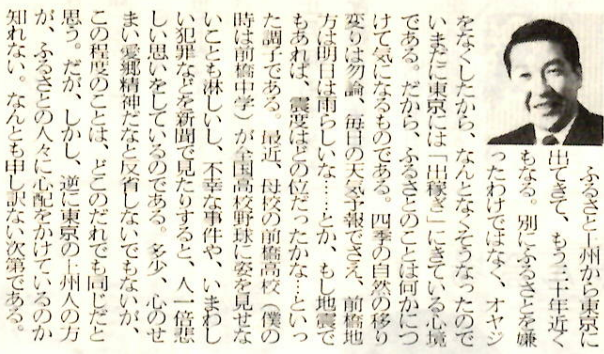 ふるさと上州から東京に
出てきて、もう三十年近く
もなる。別にふるさとを嫌
ったわけではなく、オヤジ
をなくしたから、なんとなくそうなったので
いまだに東京には「出稼ぎ」にきている心境
である。だから、ふるさとのことは何かにつ
けて気になるものである。四季の自然の移り
変りは勿論、毎日の天気予報でさえ、前橋地
方は明日は雨らしいな……とか、もし地震で
もあれば、震度はどの位だったかな…といっ
た調子である。最近、母校の前橋高校（僕の
時は前橋中学）が全国高校野球に姿を見せな
いことも淋しいし、不幸な事件や、いまわし
い犯罪などを新聞で見たりすると、人一倍悲
しい思いをしているのである。多少、心のせ
まい愛郷精神だなと反省しないでもないが、
この程度のことは、どこのだれでも同じだと
思う。だが、しかし、逆に東京の上州人の方
が、ふるさとの人々に心配をかけているのか
知れない。なんとも申し訳ない次第である。